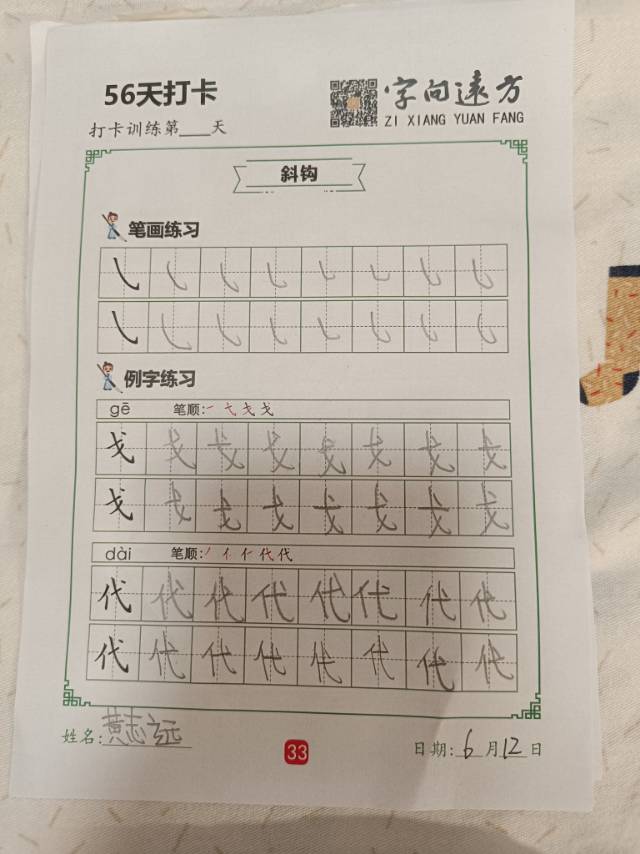 56天打卡
字向遠方
ZI XIANG YUAN FANG
打卡训练第____天
斜钩
笔画练习
例字练习
gē 笔顺:一 弋 戈 戈
戈 戈 戈 戈 戈 戈 戈 戈
戈 戈 戈 戈 戈 戈 戈 戈
dài 笔顺:丿 亻 仁 代 代
代 代 代 代 代 代 代 代
代 代 代 代 代 代 代 代
姓名:黄志远
33
日期:6月12日